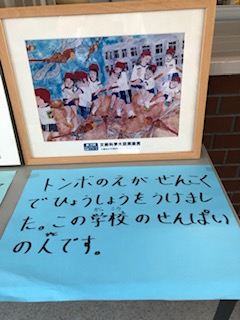 文部科学大臣奨励賞
トンボのえがぜんこく
でひょうしょうをうけまし
た。この学校のせんぱい
の人です。